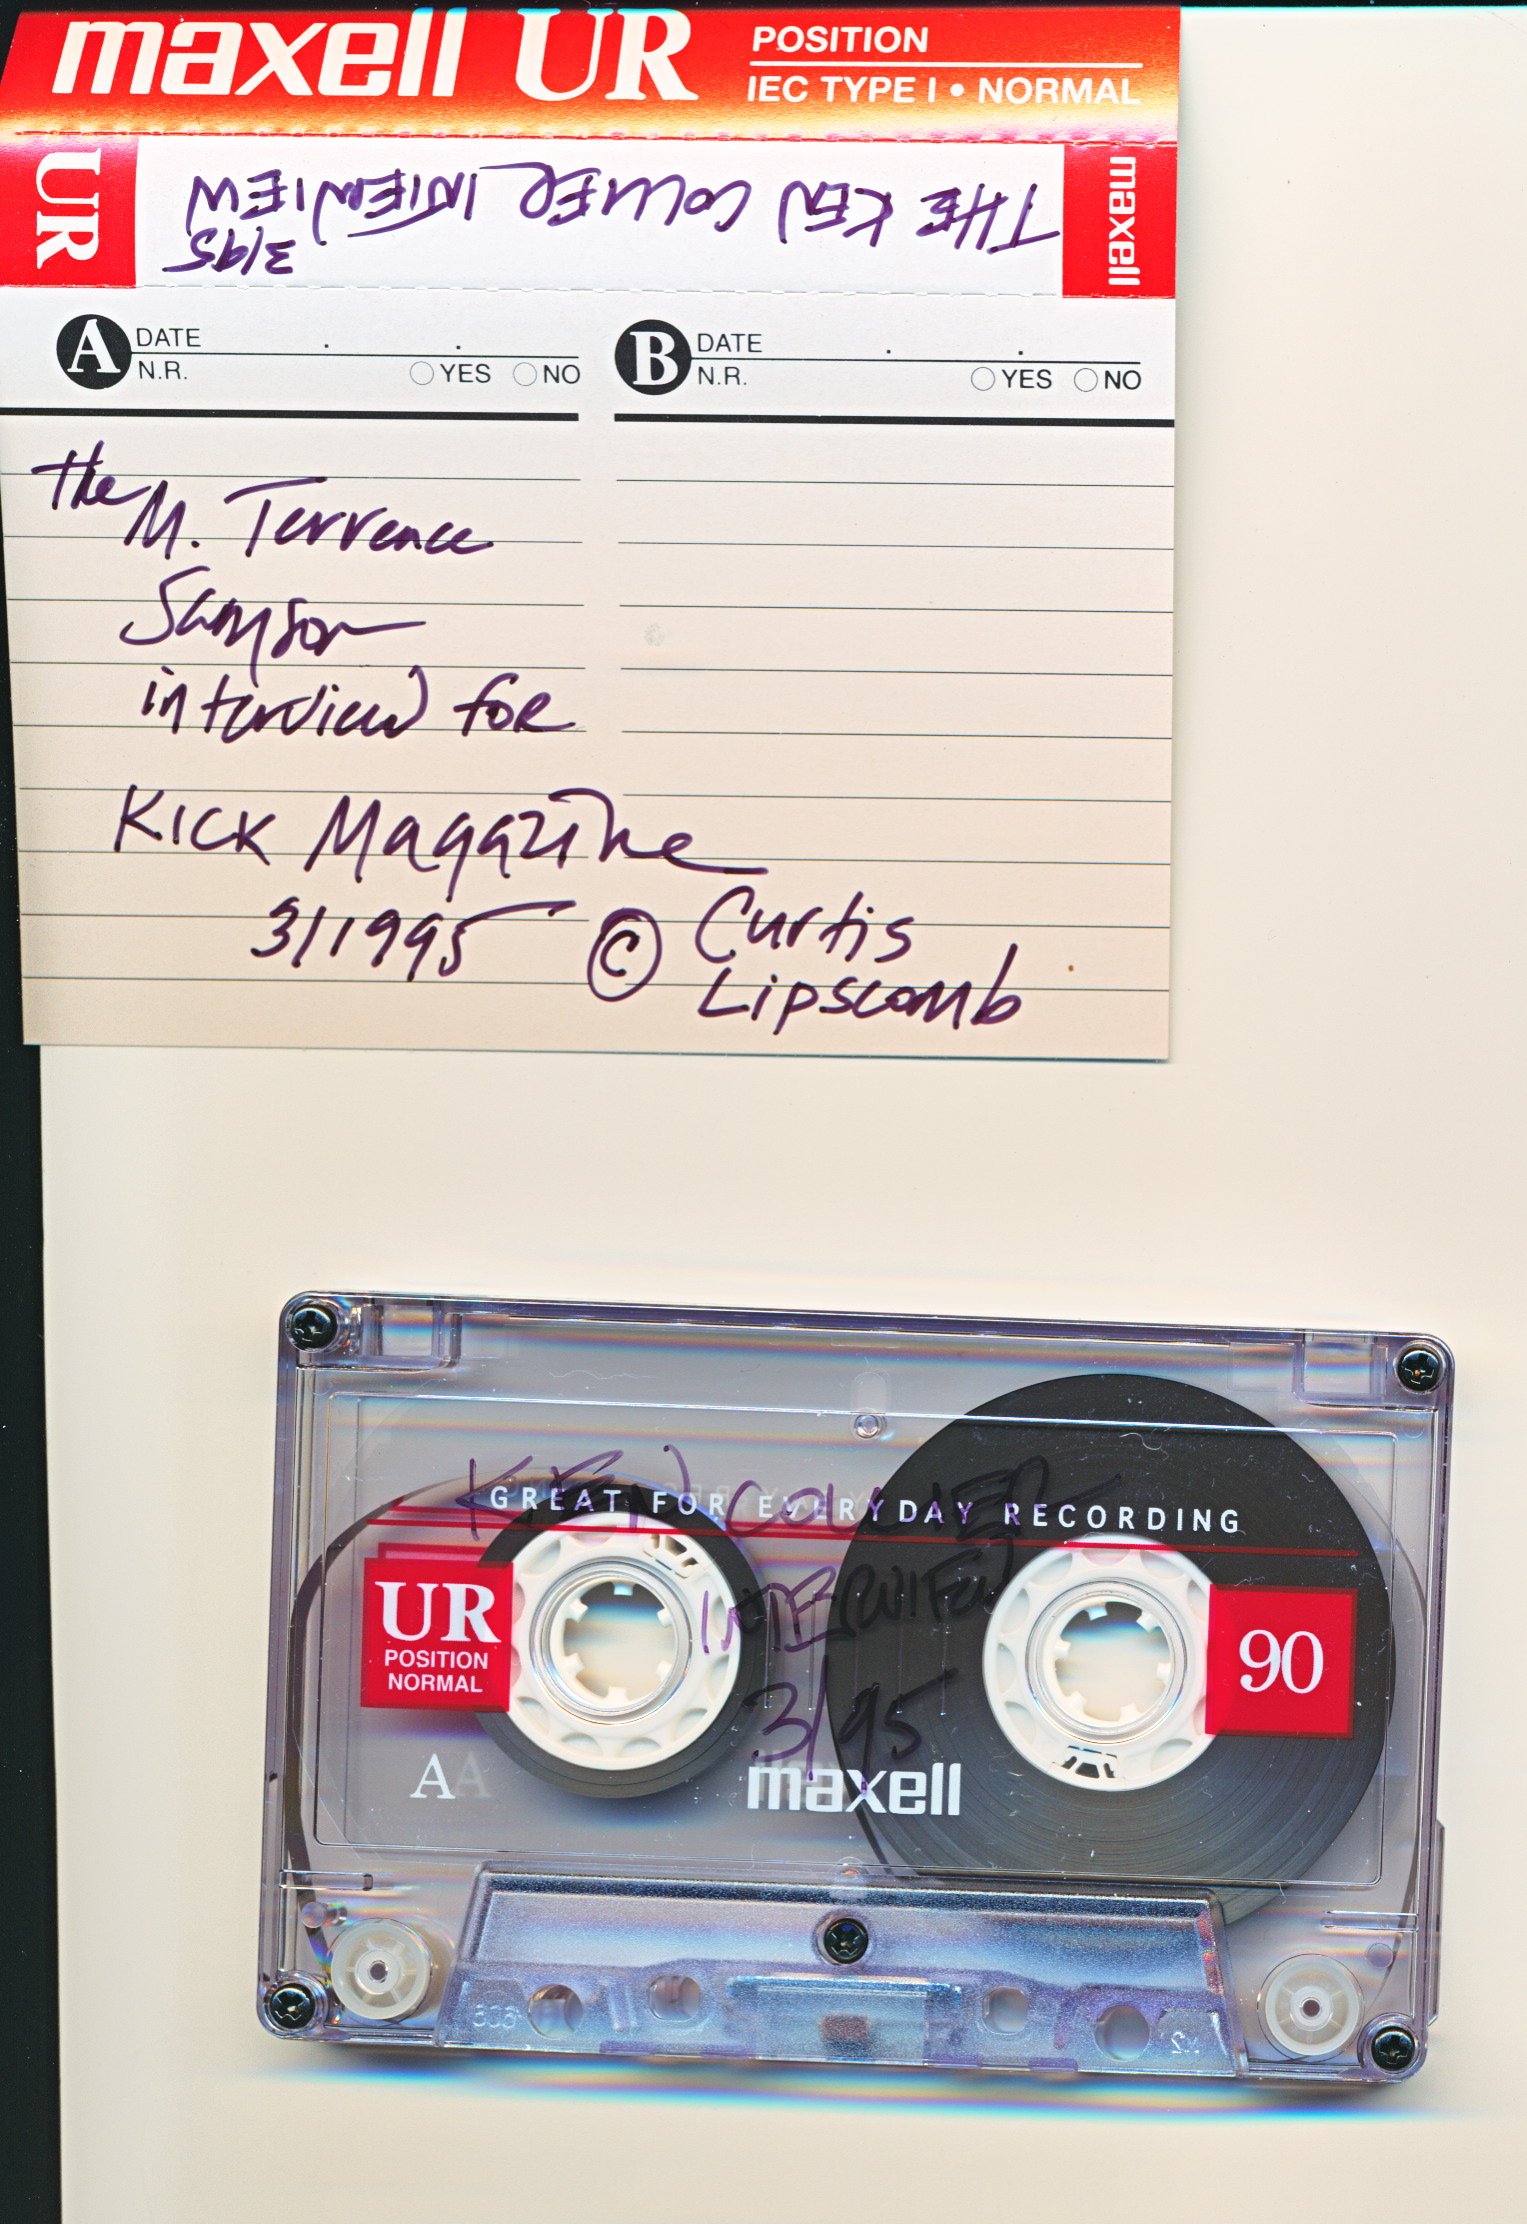 maxell UR
POSITION
IEC TYPE I • NORMAL
UR
THE KEN COLLIER INTERVIEW
3/95
maxell
A DATE
N.R. YES NO
B DATE
N.R. YES NO
the
M. Terrence
Samson
interview for
KICK Magazine
3/1995 © Curtis
Lipscomb
KEN COLLIER
GREAT FOR EVERYDAY RECORDING
INTERVIEW
UR
POSITION
NORMAL
90
3/95
A
maxell